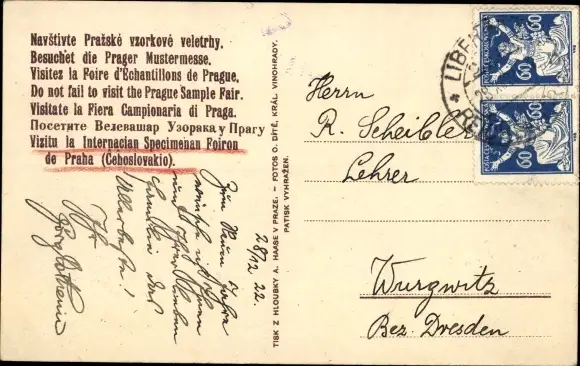 Navštivte Pražské vzorkové veletrhy.
Besuchet die Prager Mustermesse.
Visitez la Foire d'Echantillons de Prague.
Do not fail to visit the Prague Sample Fair.
Visitate la Fiera Campionaria di Praga.
Посетите Велевашар Узорака у Прагу
Vizitu la Internacian Specimenan Foiron
de Praha (Čehoslovakio).
Zum neuen Jahre
wünscht
das
Allerbeste!
Ihr
28/12 22.
TISK Z HLOUBKY A. HAASE V PRAZE. – FOTOS O. DÍTĚ, KRÁL. VINOHRADY.
PATISK VYHRAŽEN.
60 60
60 60
LIBE
Herrn
R. Scheibler
Lehrer
Wurgwitz
Bez. Dresden